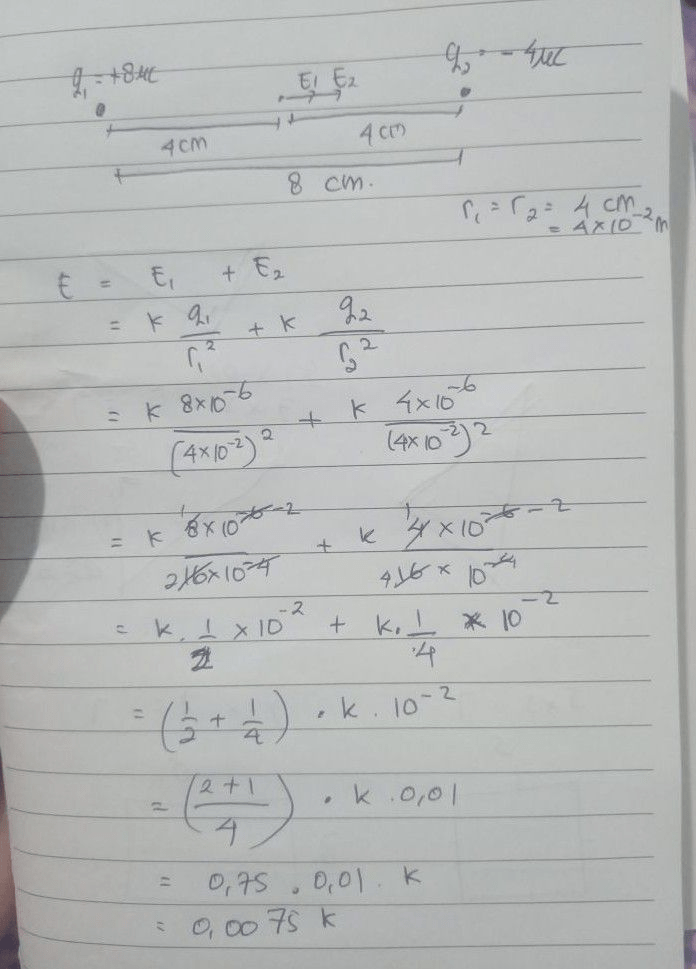 q₁ = +8 μC E₁ E₂ q₂ = -4 μC
4 cm 4 cm
8 cm.
r₁ = r₂ = 4 cm
= 4×10⁻² m
E = E₁ + E₂
= k q₁/r₁² + k q₂/r₂²
= k 8×10⁻⁶/(4×10⁻²)² + k 4×10⁻⁶/(4×10⁻²)²
= k 8×10⁻⁶ ⁻²/2 16×10⁻⁴ + k 4×10⁻⁶ ⁻²/4 16×10⁻⁴
= k . 1/2 ×10⁻² + k . 1/4 × 10⁻²
= (1/2 + 1/4) . k . 10⁻²
= (2+1/4) . k . 0,01
= 0,75 . 0,01 . k
= 0,0075 k